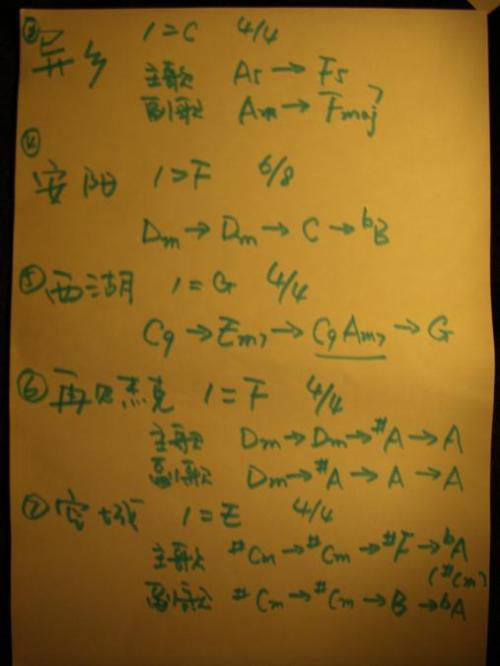 ③ 异乡 1=C 4/4
主歌 A5→F5
副歌 Am→Fmaj7
④
安阳 1=F 6/8
Dm→Dm→C→bB
⑤西湖 1=G 4/4
C9→Em7→C9Am7→G
⑥再见杰克 1=F 4/4
主歌 Dm→Dm→#A→A
副歌 Dm→#A→A→A
⑦空城 1=E 4/4
主歌 #Cm→#Cm→#F→bA
(#Cm)
副歌 #Cm→#Cm→B→bA